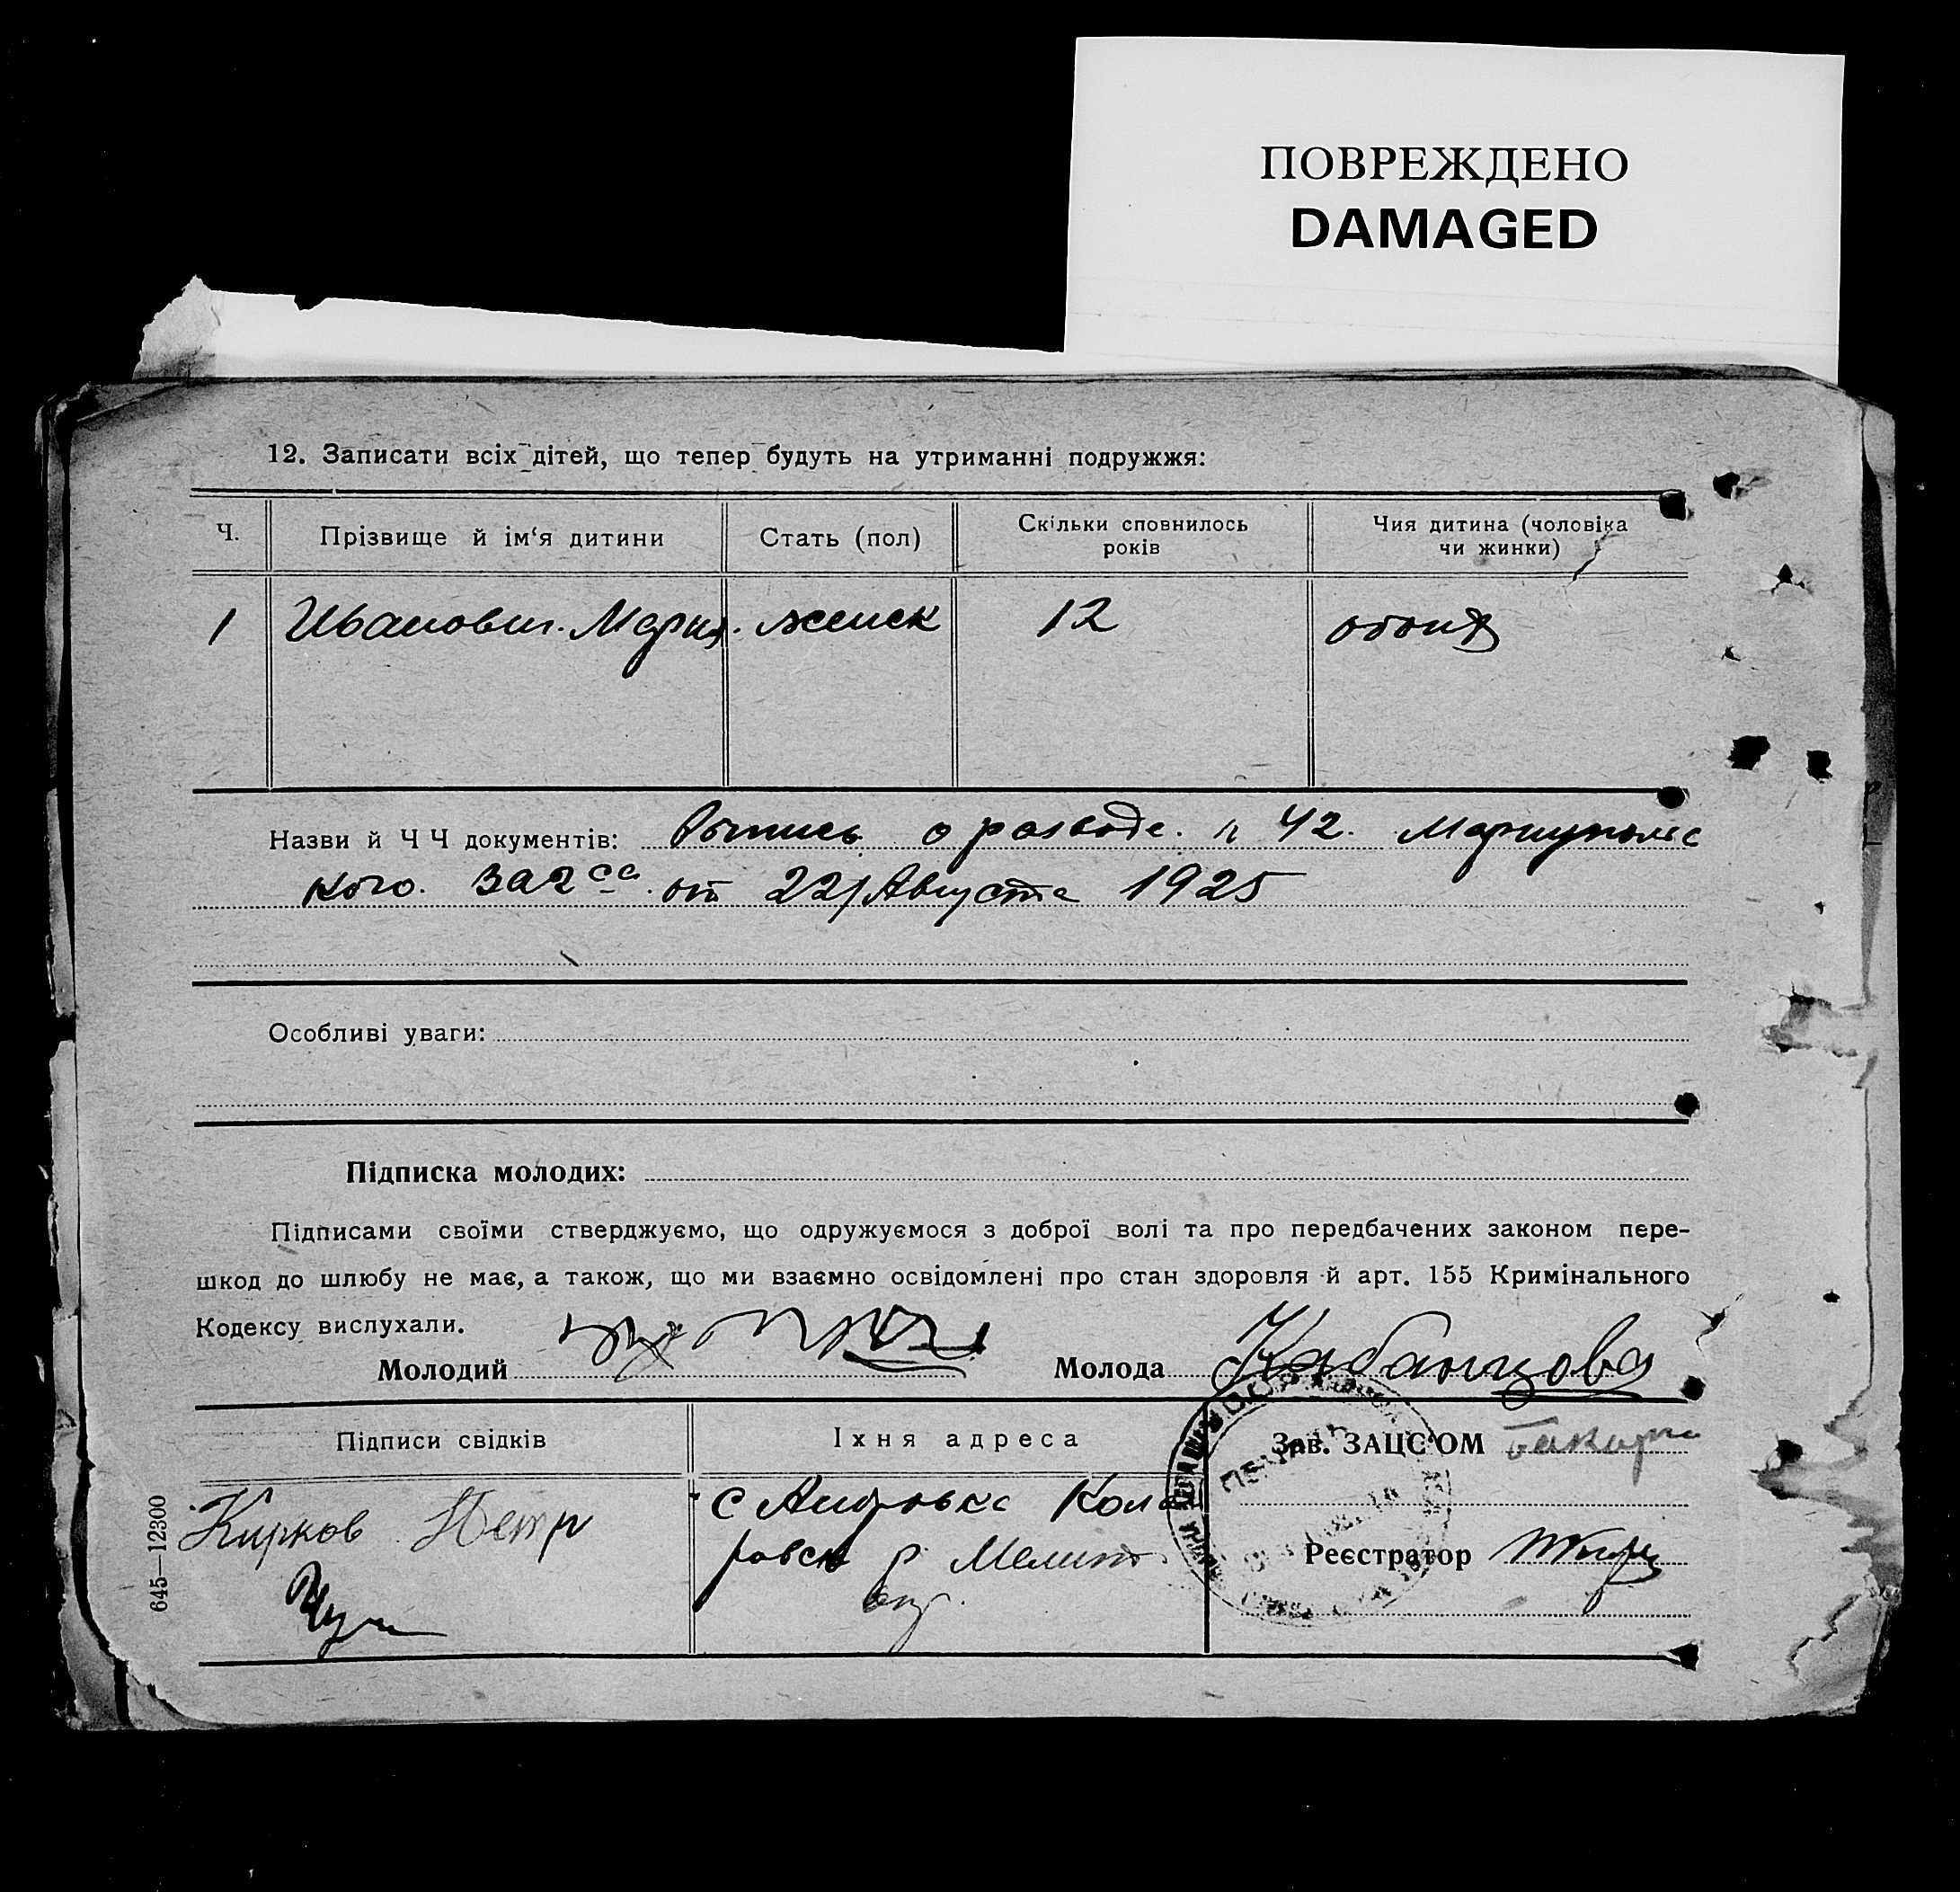 ПОВРЕЖДЕНО
DAMAGED
12. Записати всіх дітей, що тепер будуть на утриманні подружжя:
Ч. Прізвище й ім‘я дитини Стать (пол) Скільки сповнилось років Чия дитина (чоловіка чи жинки)
1 Иванович. Мария. женск 12
Назви й Ч Ч документів: о разводе. 42. Мариупольс
кого. Загса. от 22/Августа 1925
Особливі уваги:
Підписка молодих:
Підписами своїми стверджуємо, що одружуємося з доброї волі та про передбачених законом пере-
шкод до шлюбу не має, а також, що ми взаємно освідомлені про стан здоровля й арт. 155 Кримінального
Кодексу вислухали.
Молодий Молода Кабанцова
Підписи свідків Їхня адреса Зав. ЗАЦС‘ОМ
Кирков Петр с Кола
ровск р. Мелит
окр.
Реєстратор
645—12300